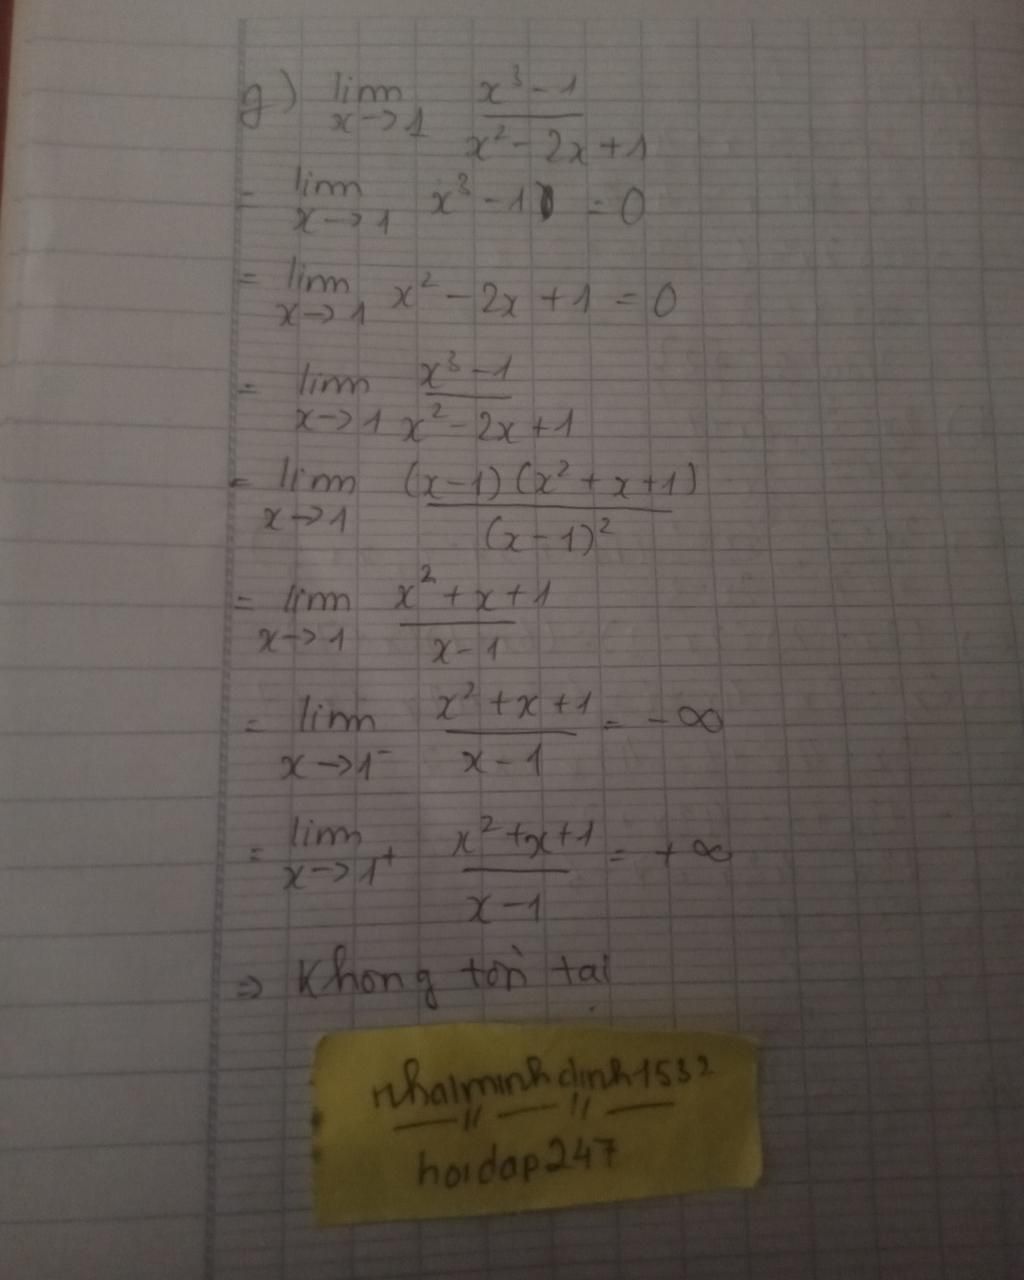 g) lim x→1 (x³ - 1)/(x² - 2x + 1)
= lim x→1 x³ - 1 = 0
= lim x→1 x² - 2x + 1 = 0
= lim x→1 (x³ - 1)/(x² - 2x + 1)
= lim x→1 (x-1)(x² + x + 1)/(x - 1)²
= lim x→1 (x² + x + 1)/(x - 1)
= lim x→1⁻ (x² + x + 1)/(x - 1) = -∞
= lim x→1⁺ (x² + x + 1)/(x - 1) = +∞
⇒ Khong tồn tại
nhalminhdinh1532
hoidap247